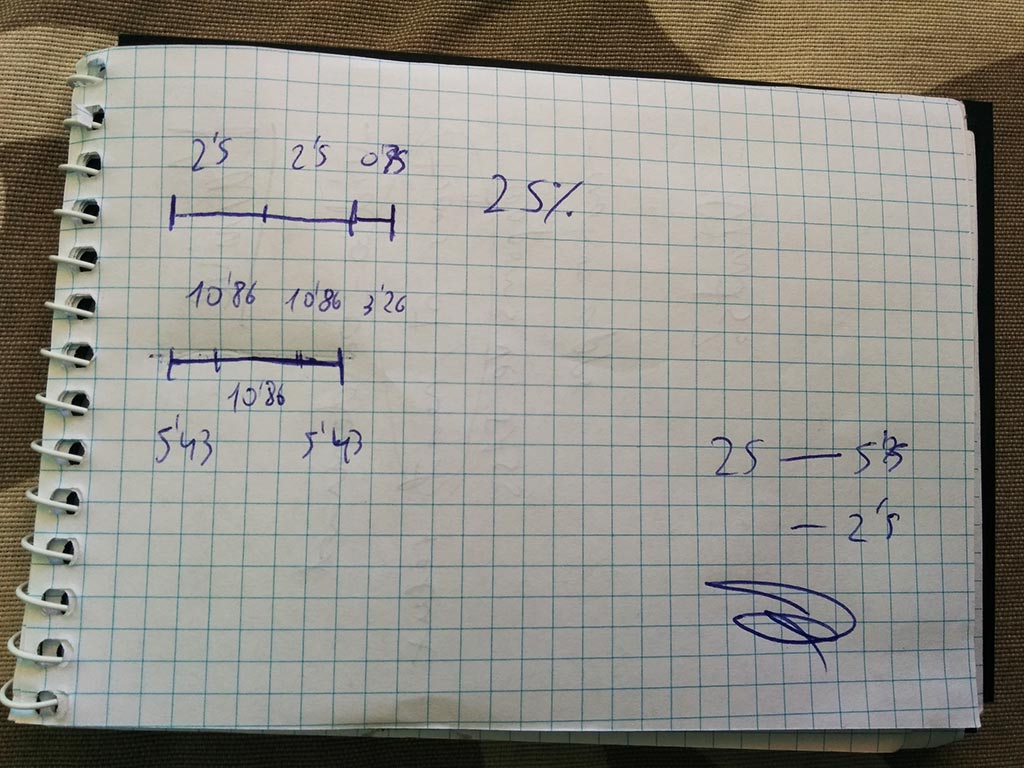 2'5 2'5 0'75
25%
10'86 10'86 3'26
10'86
5'43 5'43
25 — 5'75
— 2'5